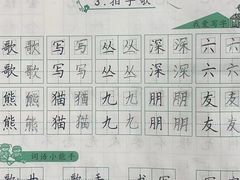 3.拍手歌
我爱写字
歌歌写写丛丛深深六六
歌歌写写丛丛深深六六
熊熊猫猫九九朋朋友友
熊熊猫猫九九朋朋友友
词语小能手